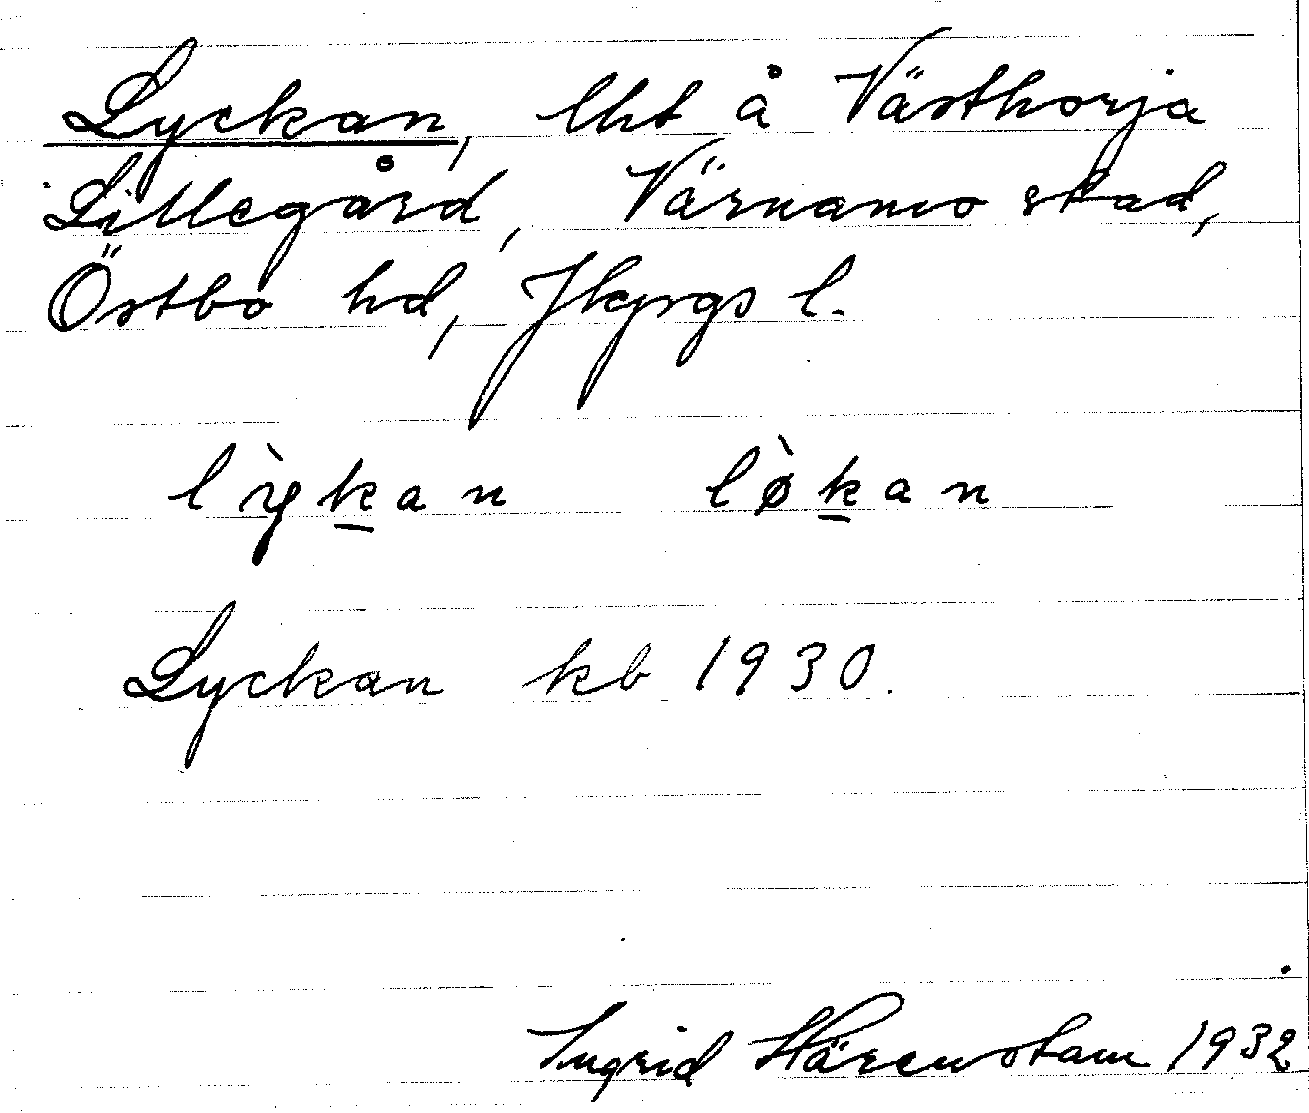 Lyckan, lht å Västhorja
Lillegård, Värnamo stad,
Östbo hd, Jkpgs l.
lỳkan lø̀kan
Lyckan kb 1930.
Ingrid Härenstam 1932